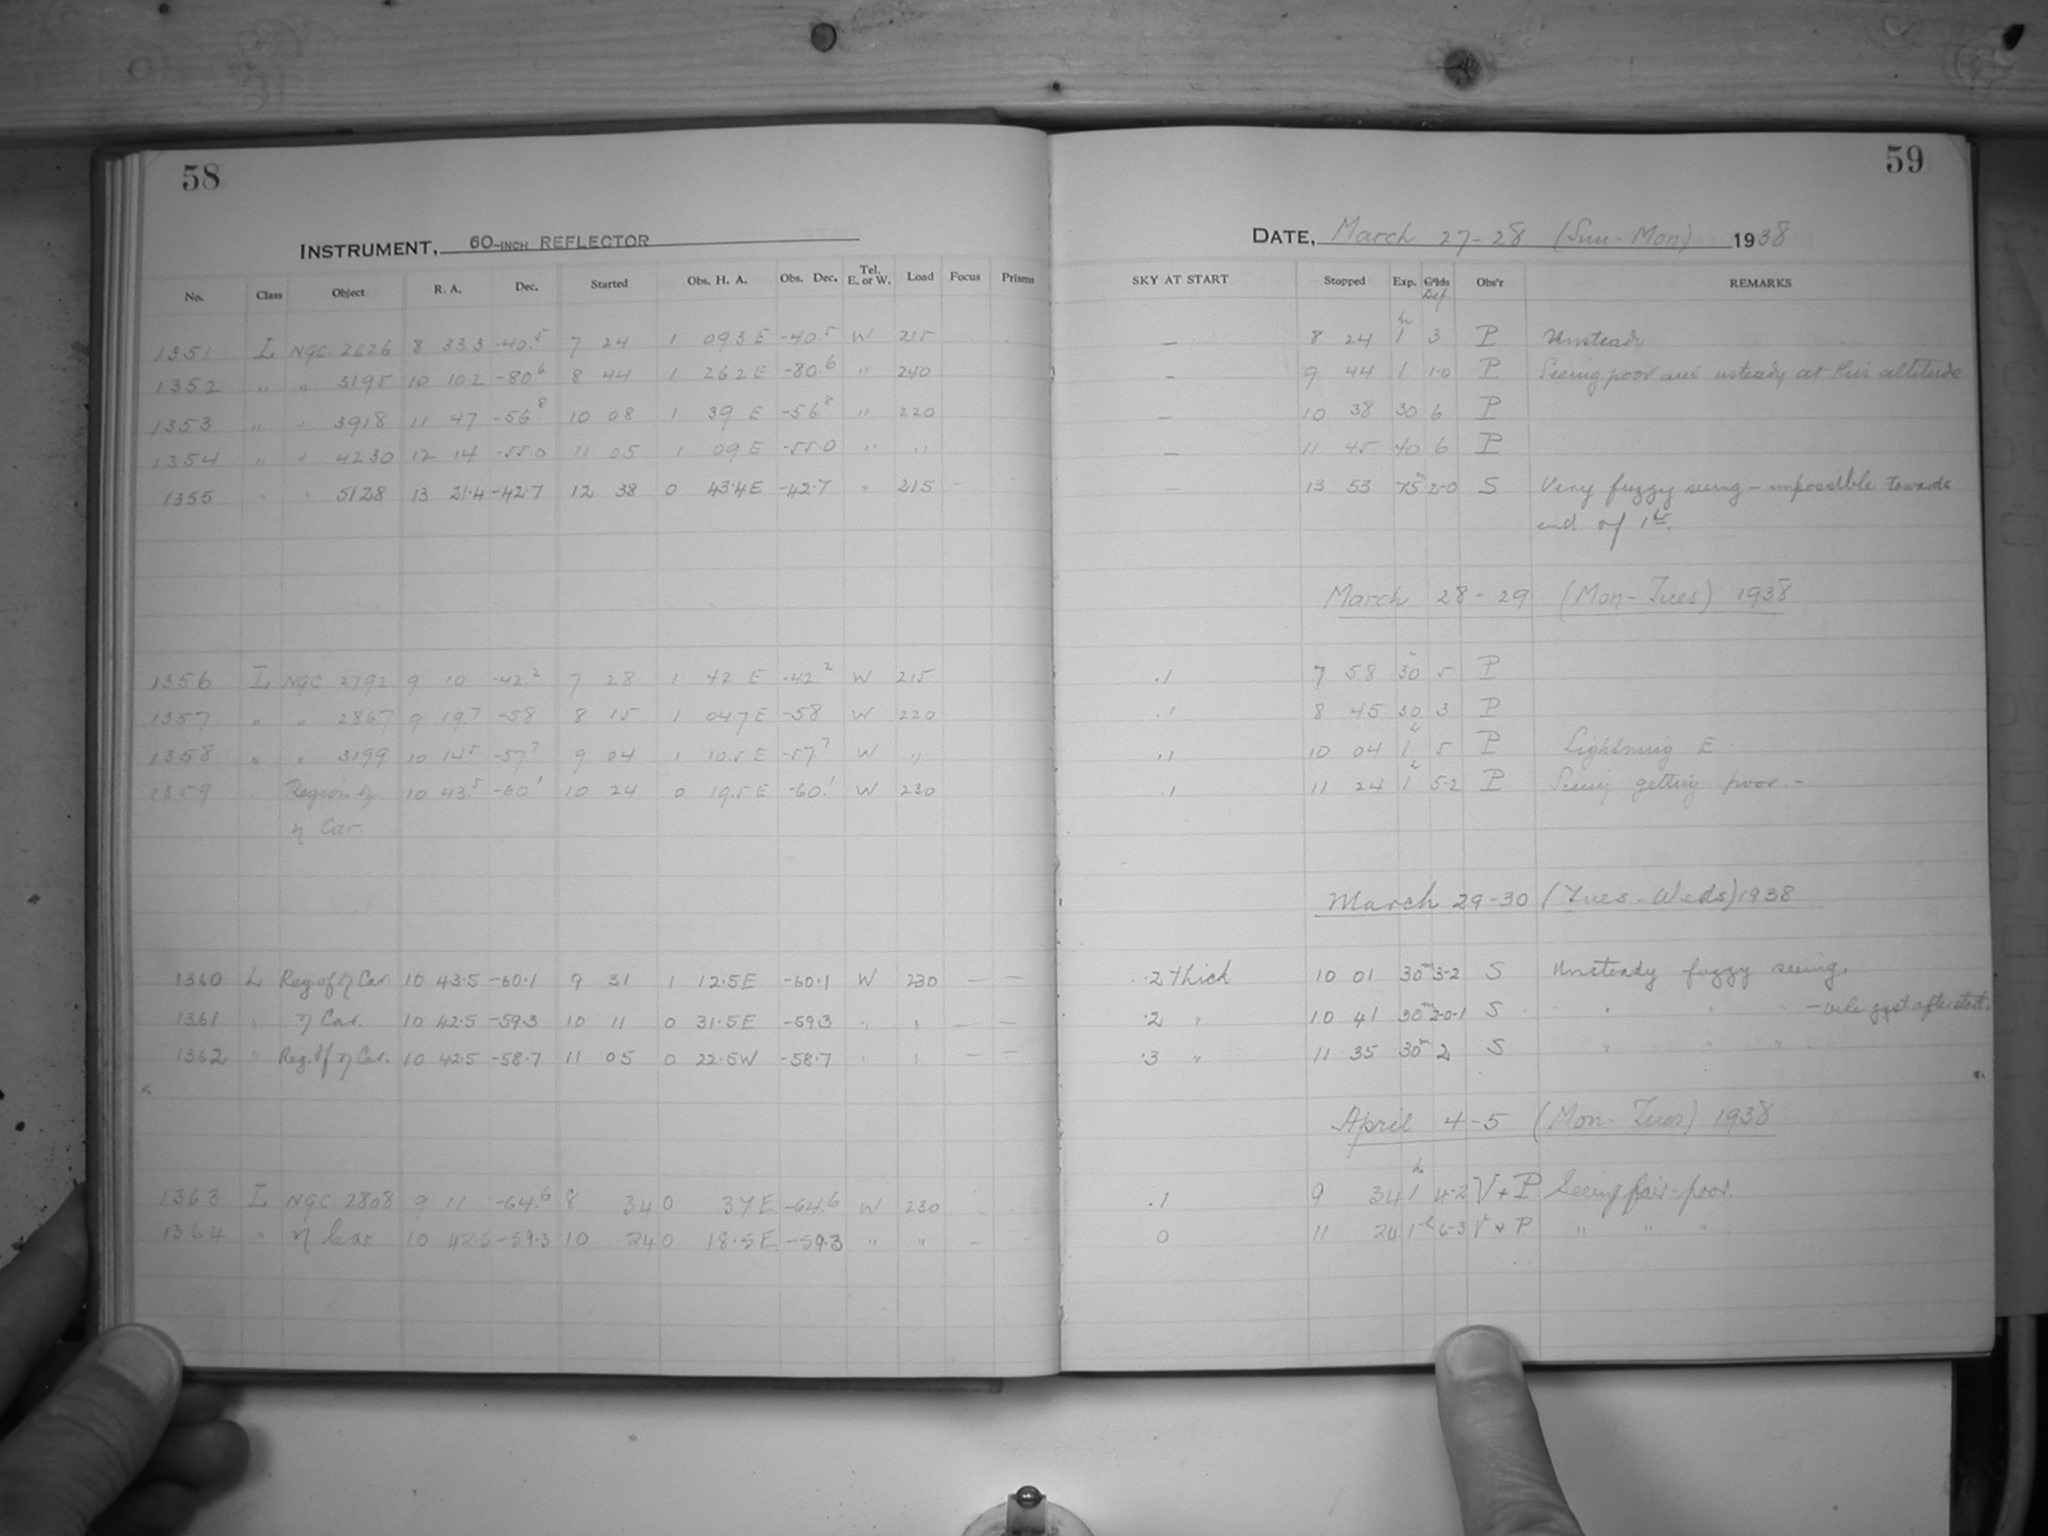 58
INSTRUMENT, 60-INCH REFLECTOR
No. Class Object R. A. Dec. Started Obs. H. A. Obs. Dec. Tel. E. or W. Load Focus Prisms
1351 L NGC 2626 8 33.3 -40.5 7 24 1 09.3 E -40.5 W 215
1352 " " 3195 10 10.2 -80.6 8 44 1 26.2 E -80.6 " 240
1353 " " 3918 11 47 -56.8 10 08 1 39 E -56.8 " 220
1354 " " 4230 12 14 -55.0 11 05 1 09 E -55.0 " "
1355 " " 5128 13 21.4 -42.7 12 38 0 43.4 E -42.7 " 215 -
1356 L NGC 2792 9 10 -42.2 7 28 1 42 E -42.2 W 215
1357 " " 2867 9 19.7 -58 8 15 1 04.7 E -58 W 220
1358 " " 3199 10 14.5 -57.7 9 04 1 10.5 E -57.7 W "
1359 " Region of 10 43.5 -60.1 10 24 0 19.5 E -60.1 W 230
η Car.
1360 L Reg. of η Car. 10 43.5 -60.1 9 31 1 12.5 E -60.1 W 230 — —
1361 " η Car. 10 42.5 -59.3 10 11 0 31.5 E -59.3 " " — —
1362 " Reg. of η Car. 10 42.5 -58.7 11 05 0 22.5 W -58.7 " " — —
1363 L NGC 2808 9 11 -64.6 8 34 0 37 E -64.6 W 230
1364 " η Car 10 42.5 -59.3 10 24 0 18.5 E -59.3 " " - -
59
DATE, March 27-28 (Sun-Mon) 1938
SKY AT START Stopped Exp. G'lds Def Obs'r REMARKS
— 8 24 1 hr 3 P Unsteady
— 9 44 1 1-0 P Seeing poor and usteady at this altitude
— 10 38 30 6 P
— 11 45 40 6 P
— 13 53 75m 2-0 S Very fuzzy seeing - impossible towards
end of 1 hr.
March 28-29 (Mon-Tues) 1938
.1 7 58 30 5 P
.1 8 45 30 3 P
.1 10 04 1h 5 P Lightning E.
.1 11 24 1h 5-2 P Seeing getting poor. -
March 29-30 (Tues-Weds) 1938
.2 thick 10 01 30m 3-2 S Unsteady fuzzy seeing.
.2 " 10 41 30m 2-0-1 S " " " -
.3 " 11 35 30m 2 S " " "
April 4-5 (Mon-Tues) 1938
.1 9 34 1 hr 4-2 V + P Seeing fair-poor.
0 11 24 1h 6-3 V + P " " "